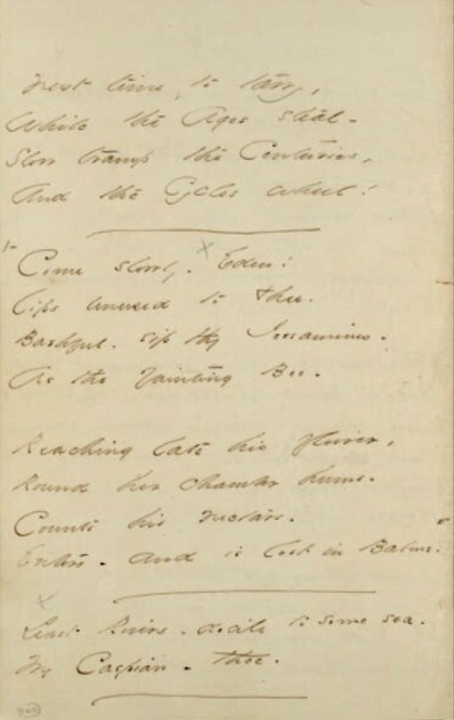 Next time, to tarry,
While the Ages steal -
Slow tramp the Centuries,
And the Cycles wheel!
Come slowly - Eden!
Lips unused to Thee -
Bashful - sip thy Jessamines -
As the fainting Bee -
Reaching late his flower,
Round her chamber hums -
Counts his nectars -
Enters - and is lost in Balms.
Least Rivers - docile to some sea.
My Caspian - thee.